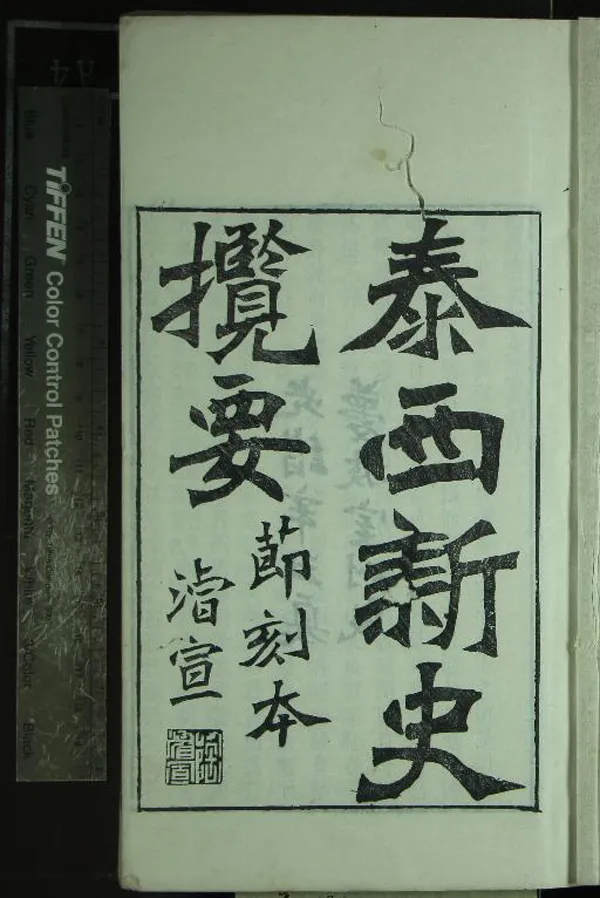 泰西新史
攬要
節刻本
濬宣
TIFFEN Color Control Patches
Blue
Cyan
Green
Yellow
Red
Magenta
White
3/Color
Black